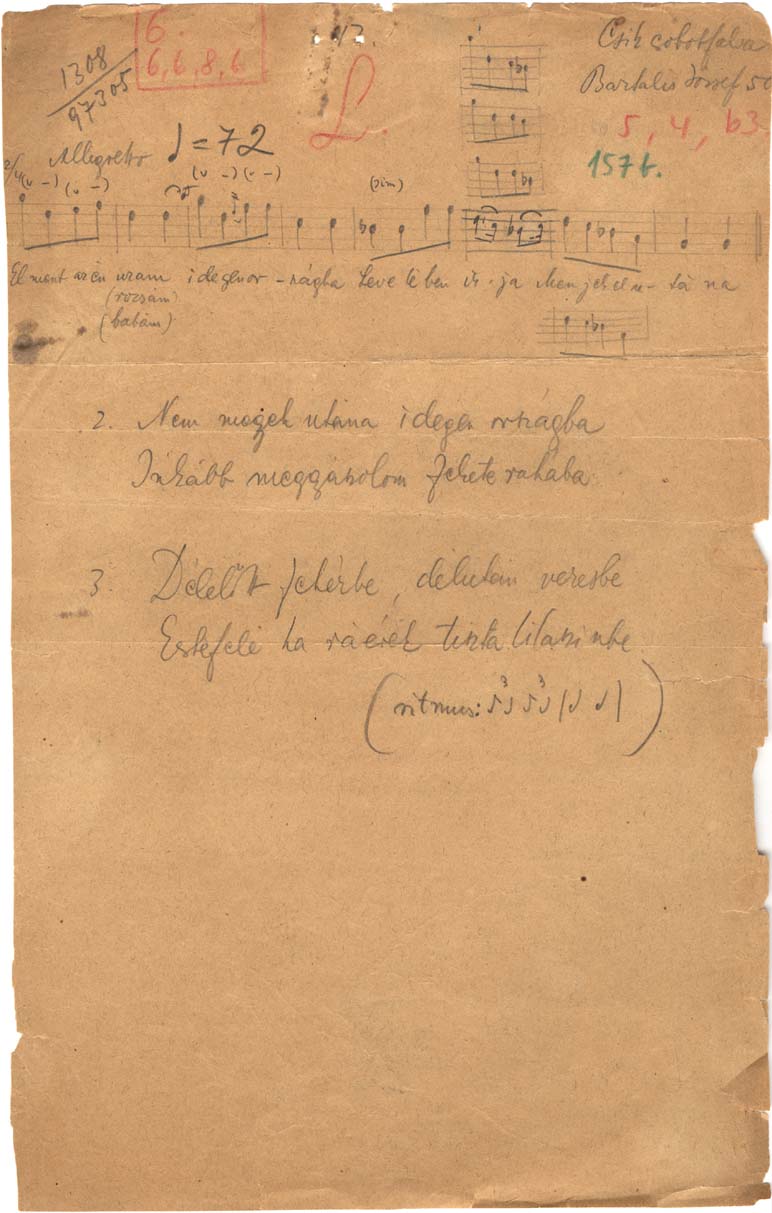 1308
97305
6.
6,6,8,6
L.
Csik csobotfalva
Bartalis József 50
5, 4, b3
157 b.
Allegretto ♩=72
2/4
(sim)
Elment az én uram idegenor-szágba Leve le ben ír-ja Menjek el u-tá na
(rozsám)
(babám)
2. Nem megyek utána idegen országba
Inkább meggyászolom fekete ruhába
3. Délelőtt fehérbe, délután veresbe
Estefelé ha ráérek tiszta lilaszinbe
(ritmus: ♪3♩ ♪3♩ | ♩ ♩ |)